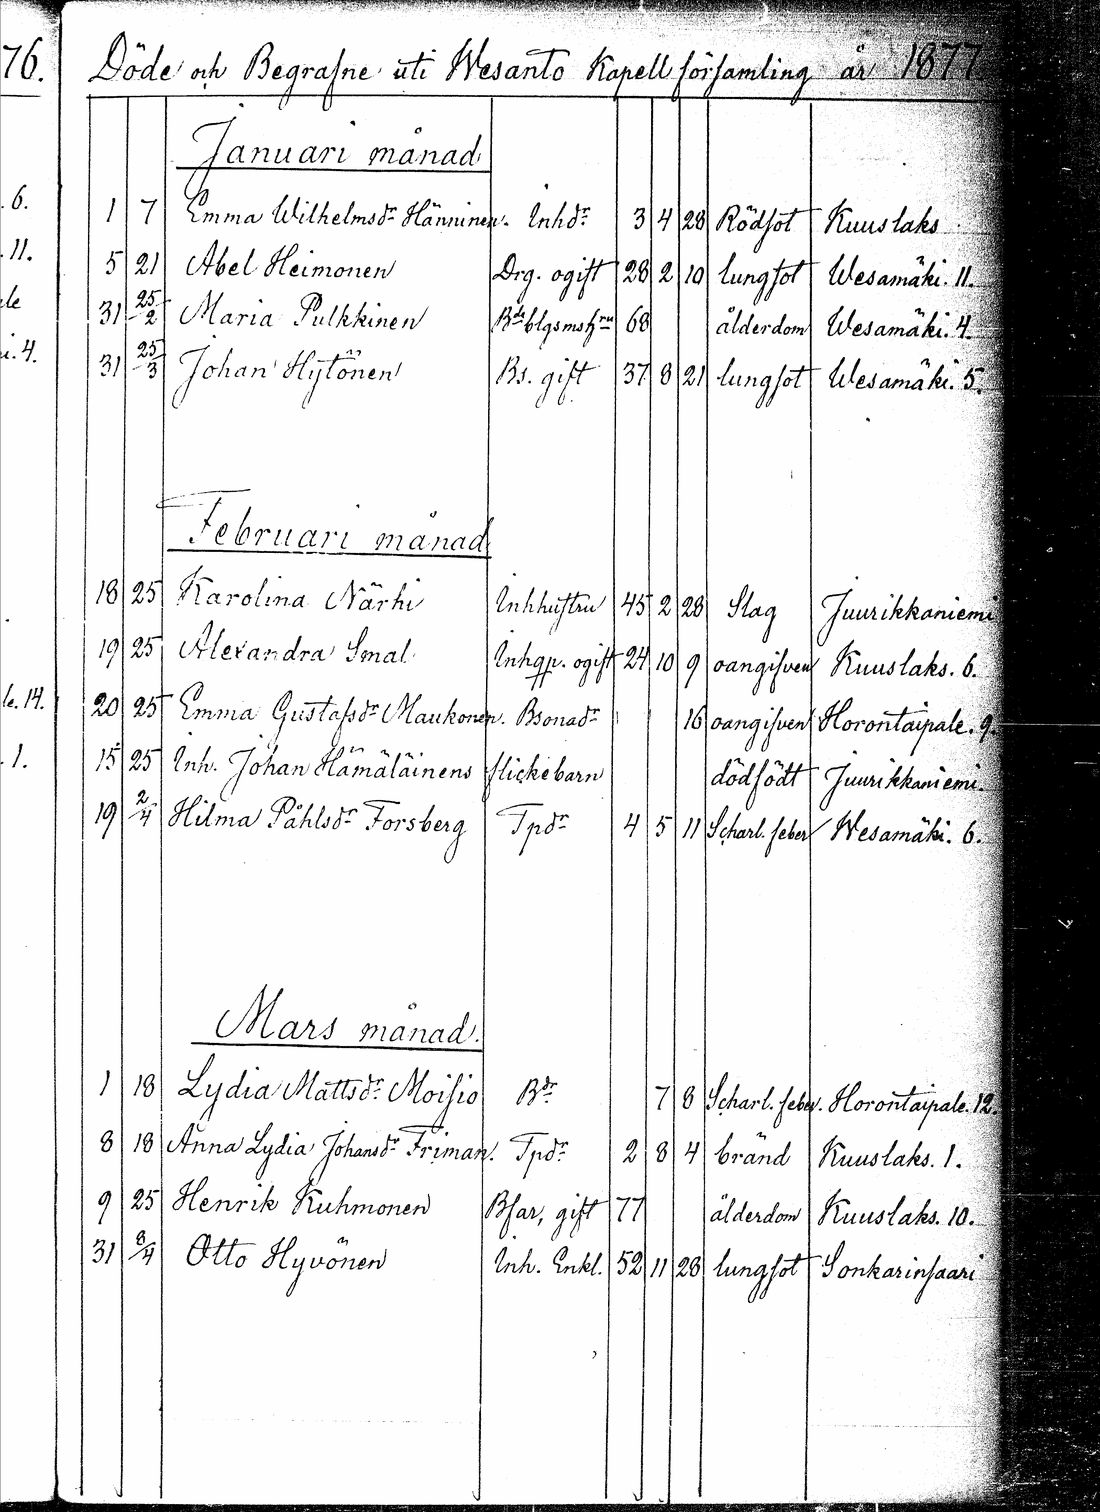 76.
Döde och Begrafne uti Wesanto Kapellförsamling år 1877
Januari månad
. 6.
1 7 Emma Wilhelmsdr Hänninen. Inhdr 3 4 28 Rödsot Kuuslaks
. 11.
5 21 Abel Heimonen Drg. ogift 28 2 10 lungsot Wesamäki. 11.
31 25/2 Maria Pulkkinen 68 ålderdom Wesamäki. 4.
31 25/3 Johan Hytönen Bs. gift 37 8 21 lungsot Wesamäki. 5.
i. 4.
Februari månad
18 25 Karolina Närhi Inhhustru 45 2 28 Slag Juurikkaniemi
19 25 Alexandra Smal Inhqp. ogift 24 10 9 oangifven Kuuslaks. 6.
le. 14.
20 25 Emma Gustafsdr Maukonen. Bsonadr 16 oangifven Horontaipale. 9.
. 1.
15 25 Inh. Johan Hämäläinens flickebarn dödfödt Juurikkaniemi.
19 2/4 Hilma Påhlsdr Forsberg Tpdr 4 5 11 Scharl. feber Wesamäki. 6.
Mars månad.
1 18 Lydia Mattsdr Moisio Bdr 7 8 Scharl. feber. Horontaipale. 12.
8 18 Anna Lydia Johansdr Friman. Tpdr 2 8 4 bränd Kuuslaks. 1.
9 25 Henrik Kuhmonen Bfar, gift 77 ålderdom Kuuslaks. 10.
31 8/4 Otto Hyvönen Inh. Enkl. 52 11 28 lungsot Sonkarinsaari